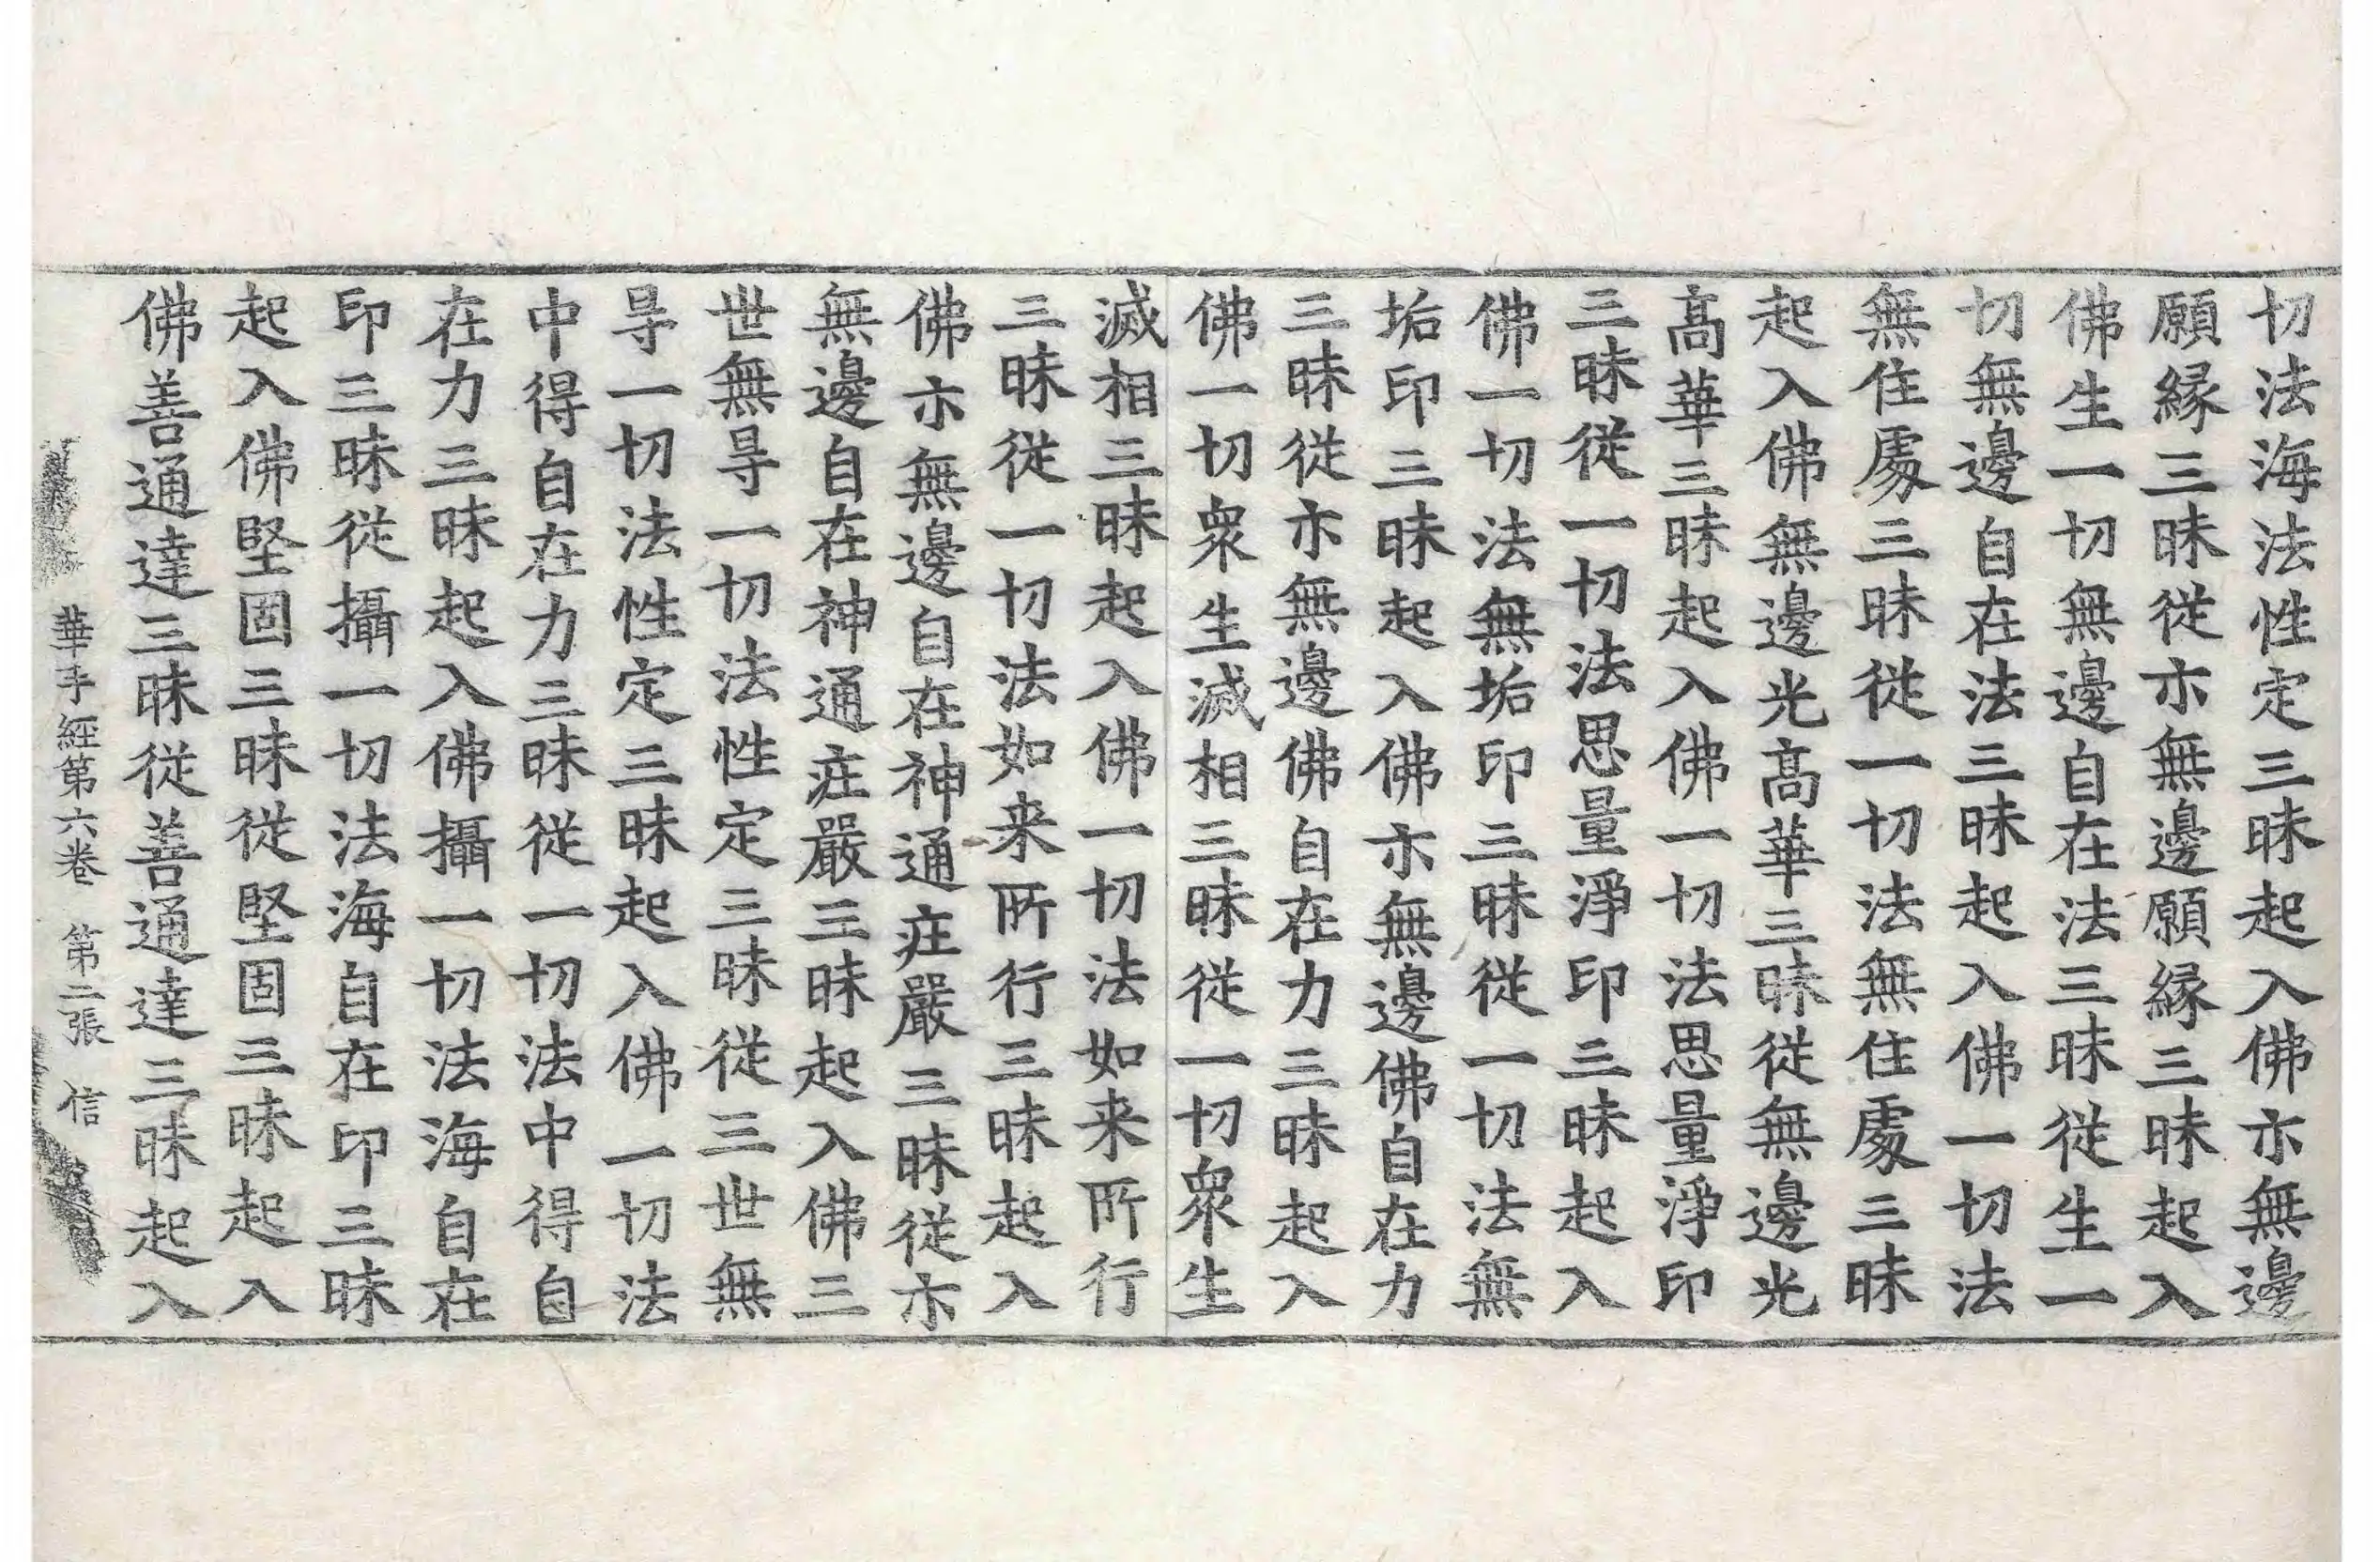 切法海法性定三昧起入佛亦無邊
願縁三昧從亦無邊願縁三昧起入
佛生一切無邊自在法三昧從生一
切無邊自在法三昧起入佛一切法
無住處三昧從一切法無住處三昧
起入佛無邊光髙華三昧從無邊光
髙華三昧起入佛一切法思量淨印
三昧從一切法思量淨印三昧起入
佛一切法無垢印三昧從一切法無
垢印三昧起入佛亦無邊佛自在力
三昧從亦無邊佛自在力三昧起入
佛一切衆生滅相三昧從一切衆生
滅相三昧起入佛一切法如来所行
三昧從一切法如来所行三昧起入
佛亦無邊自在神通疰嚴三昧從亦
無邊自在神通疰嚴三昧起入佛三
世無㝵一切法性定三昧從三世無
㝵一切法性定三昧起入佛一切法
中得自在力三昧從一切法中得自
在力三昧起入佛攝一切法海自在
印三昧從攝一切法海自在印三昧
起入佛堅固三昧從堅固三昧起入
佛善通達三昧從善通達三昧起入
華手經第六卷 第二張 信